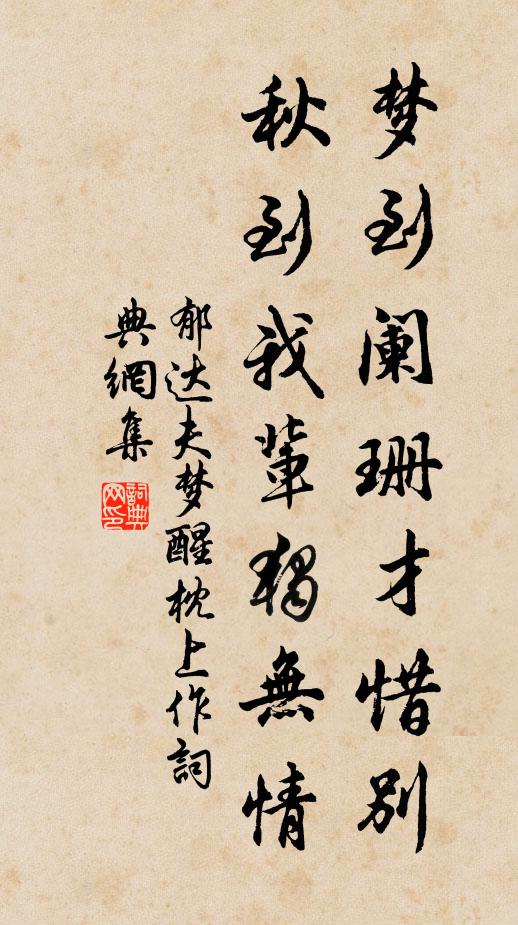 梦到阑珊才惜别
秋到我辈独無情
郁达夫梦醒枕上作詞
典網集
詞典网印